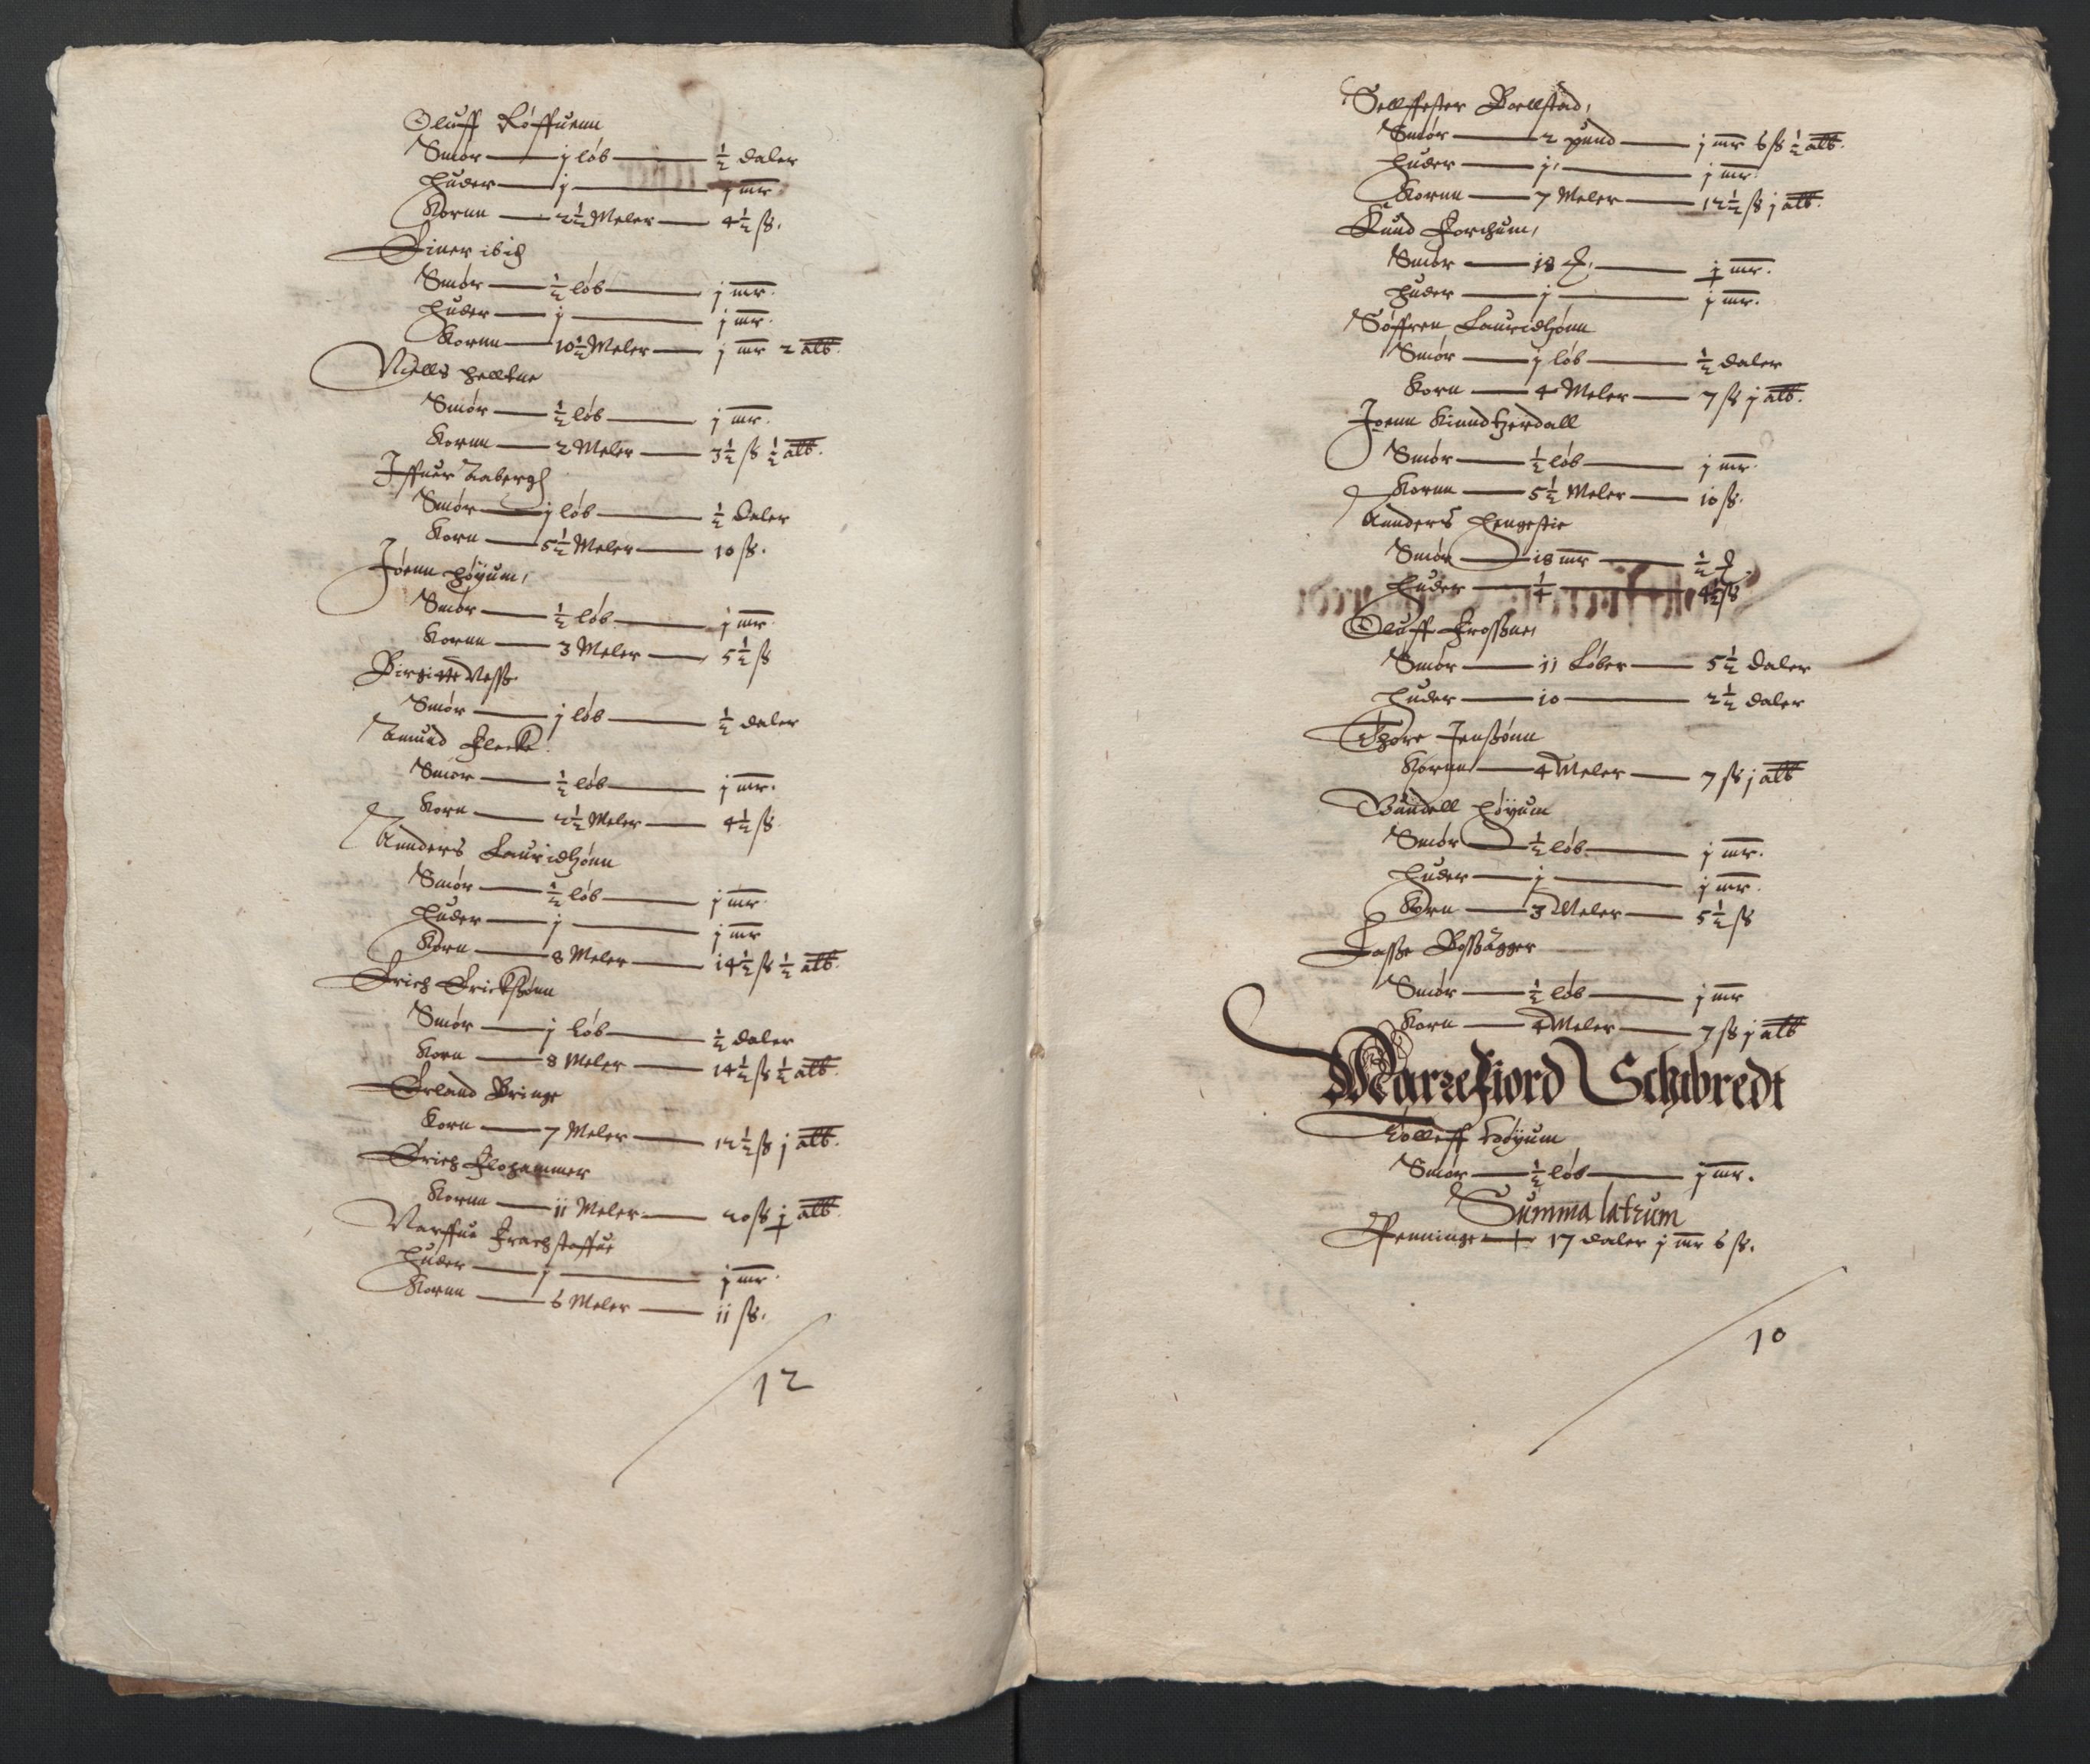 Oluff Røffuenn
Smør — j løb — ½ daler
Huder — j — j mr
Kornn — 2½ Meler — 4½ ß.
Einer ibid
Smør — ½ løb — j mr.
Huder — j — j mr.
Kornn — 10½ Meler — j mr 2 alb.
Niells Helltne
Smør — ½ løb — j mr.
Kornn — 2 Meler — 3½ ß ½ alb.
Iffuer Aabergh
Smør — j løb — ½ daler
Korn — 5½ Meler — 10 ß.
Jóenn Høyum,
Smør — ½ løb — j mr.
Kornn — 3 Meler — 5½ ß
Birgitte Neß
Smør — j løb — ½ daler
Amund Flecke
Smør — ½ løb — j mr.
Korn — 2½ Meler — 4½ ß
Annders Lauridtzónn
Smør — ½ løb — j mr.
Huder — j — j mr
Korn — 8 Meler — 14½ ß ½ alb.
Erich Erickßónn
Smør — j løb — ½ daler
Korn — 8 Meler — 14½ ß ½ alb.
Erland Bringe
Korn — 7 Meler — 12½ ß j alb.
Erich Flohammer
Kornn — 11 Meler — 20 ß j alb.
Narffue
Huder — j — j mr.
Kornn — 6 Meler — 11 ß.
12
Sellfester Boellstad,
Smør — 2 pund — j mr 6 ß ½ alb.
Huder — j, — j mr.
Kornn — 7 Meler — 12½ ß j alb.
Knud Forchum,
Smør — 18 — j mr.
Huder — j — j mr.
Søffren Lauridtzónn
Smør — j løb — ½ daler
Korn — 4 Meler — 7 ß j alb.
Joenn
Smør — ½ løb — j mr.
Kornn — 5½ Meler — 10 ß.
Annders Hengestie
Smør — 18 mr — ½
Huder — ¼ — 4½ ß
Oluff Froßne,
Smør — 11 Løber — 5½ daler
Huder — 10 — 2½ daler
Thore Jenßónn
Kornn — 4 Meler — 7 ß j alb
Gundell Høyum
Smør — ½ løb — j mr.
Huder — j — j mr.
Korn — 3 Meler — 5½ ß
Laße
Smør — ½ løb — j mr
Korn — 4 Meler — 7 ß j alb
Marrefiord Schibredt
Tolleff
Smør — ½ løb — j mr.
Summa latrum
Penninge — 17 daler j mr 6 ß.
10